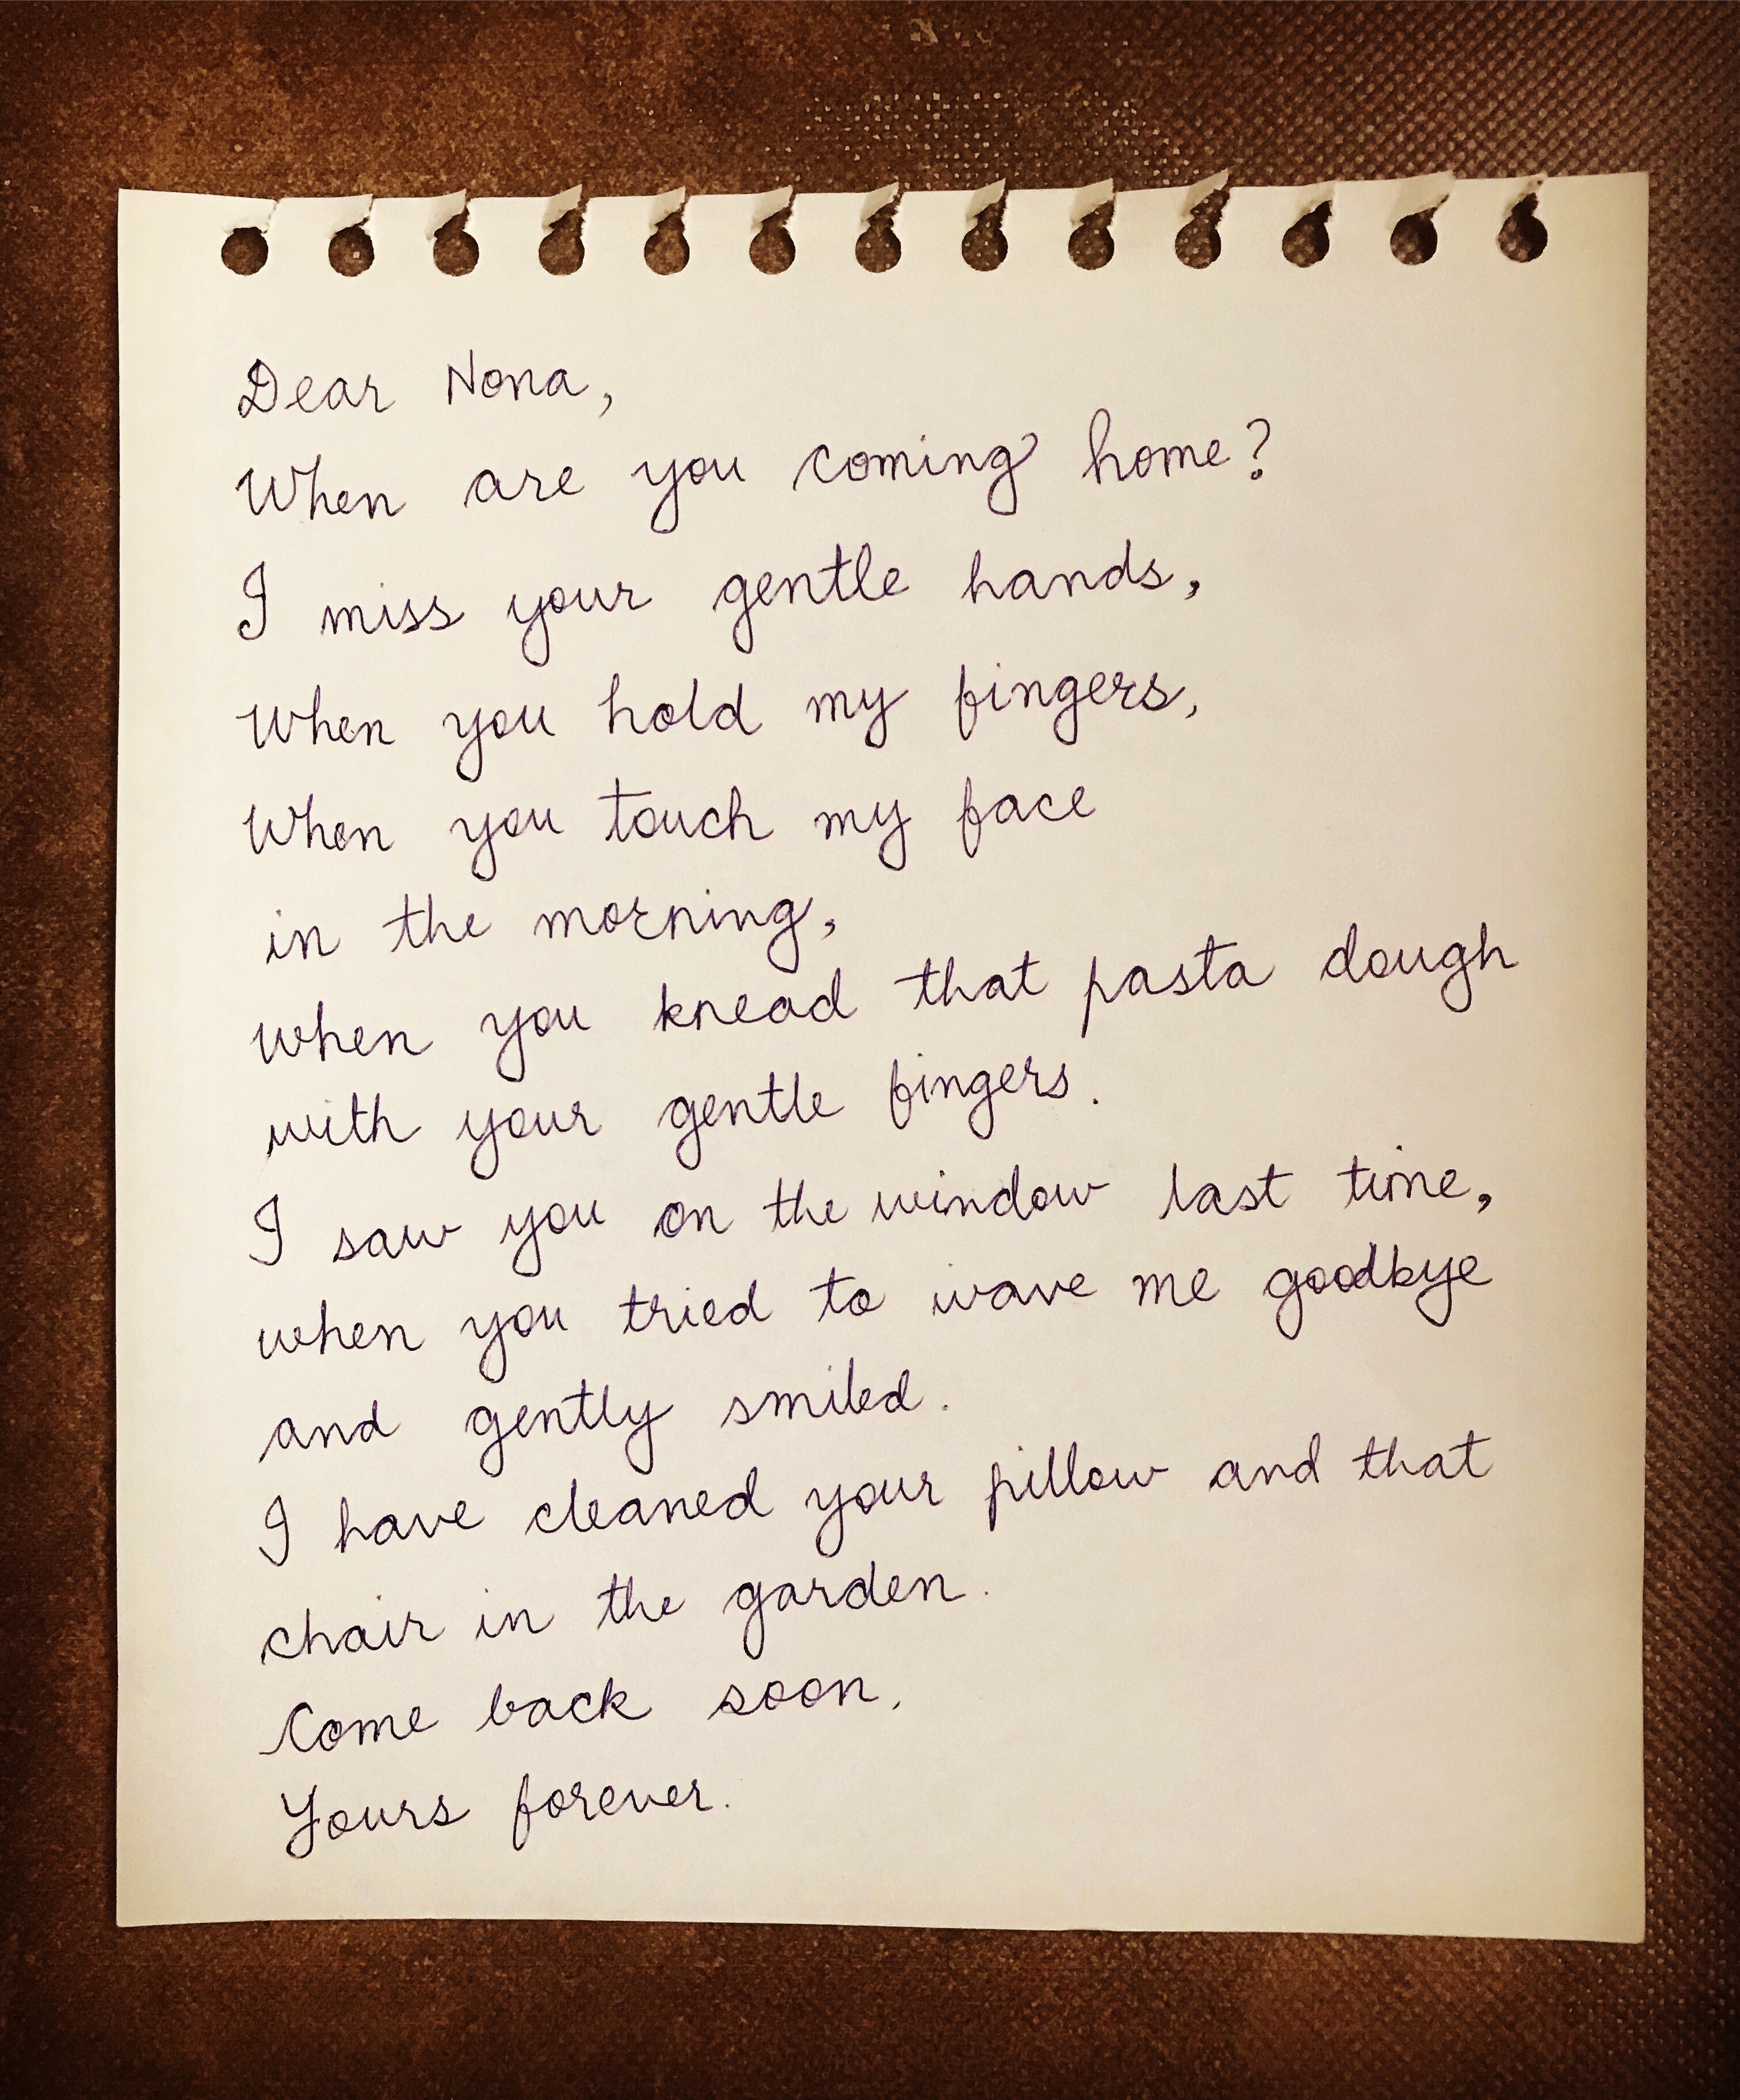 Dear Nona,
When are you coming home?
I miss your gentle hands,
When you hold my fingers,
When you touch my face
in the morning,
when you knead that pasta dough
with your gentle fingers.
I saw you on the window last time,
when you tried to wave me goodbye
and gently smiled.
I have cleaned your pillow and that
chair in the garden.
Come back soon,
Yours forever.